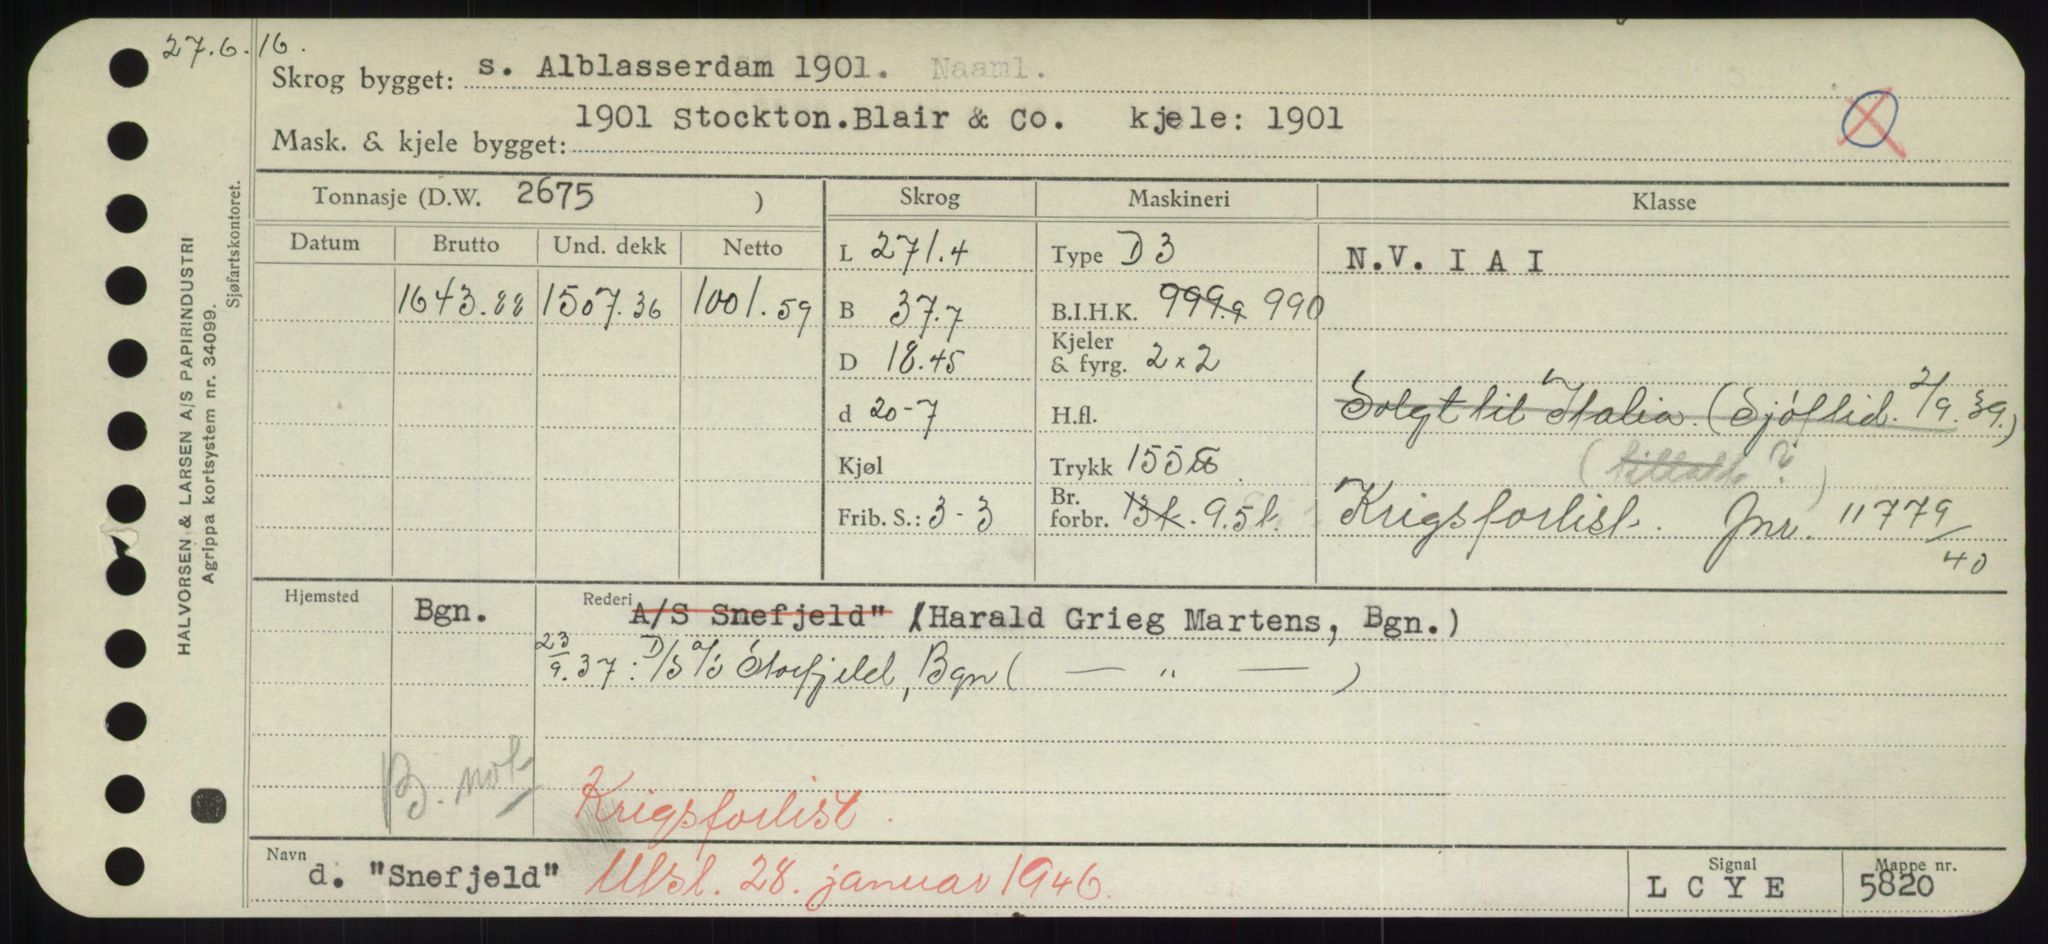 27.6.16.
Skrog bygget: s. Alblasserdam 1901. Naaml.
Mask. & kjele bygget: 1901 Stockton.Blair & Co. kjele: 1901
Tonnasje (D.W. 2675 ) Skrog Maskineri Klasse
Datum Brutto Und. dekk Netto
L 271.4 Type D 3 N.V. I A I
1643.88 1507.36 1001.59 B 37.7 B.I.H.K. 999.9 990
D 18.45 Kjeler & fyrg. 2 x 2
d 20-7 H.fl. Solgt til Italia. (Sjøftid. 2/9.39.)
Kjøl Trykk 155 ℔
Frib. S.: 3-3 Br. forbr. 13 t. 9.5 t. Krigsforlist. Jnr. 11779/40
Hjemsted Bgn. Rederi A/S Snefjeld" (Harald Grieg Martens, Bgn.)
23/9.37: D/S A/S Storfjeld, Bgn ( — " — )
B. not
Krigsforlist.
Navn d. "Snefjeld" Utsl. 28. januar 1946. Signal L C Y E Mappe nr. 5820
HALVORSEN & LARSEN A/S PAPIRINDUSTRI
Agrippa kortsystem nr. 34099.
Sjøfartskontoret.